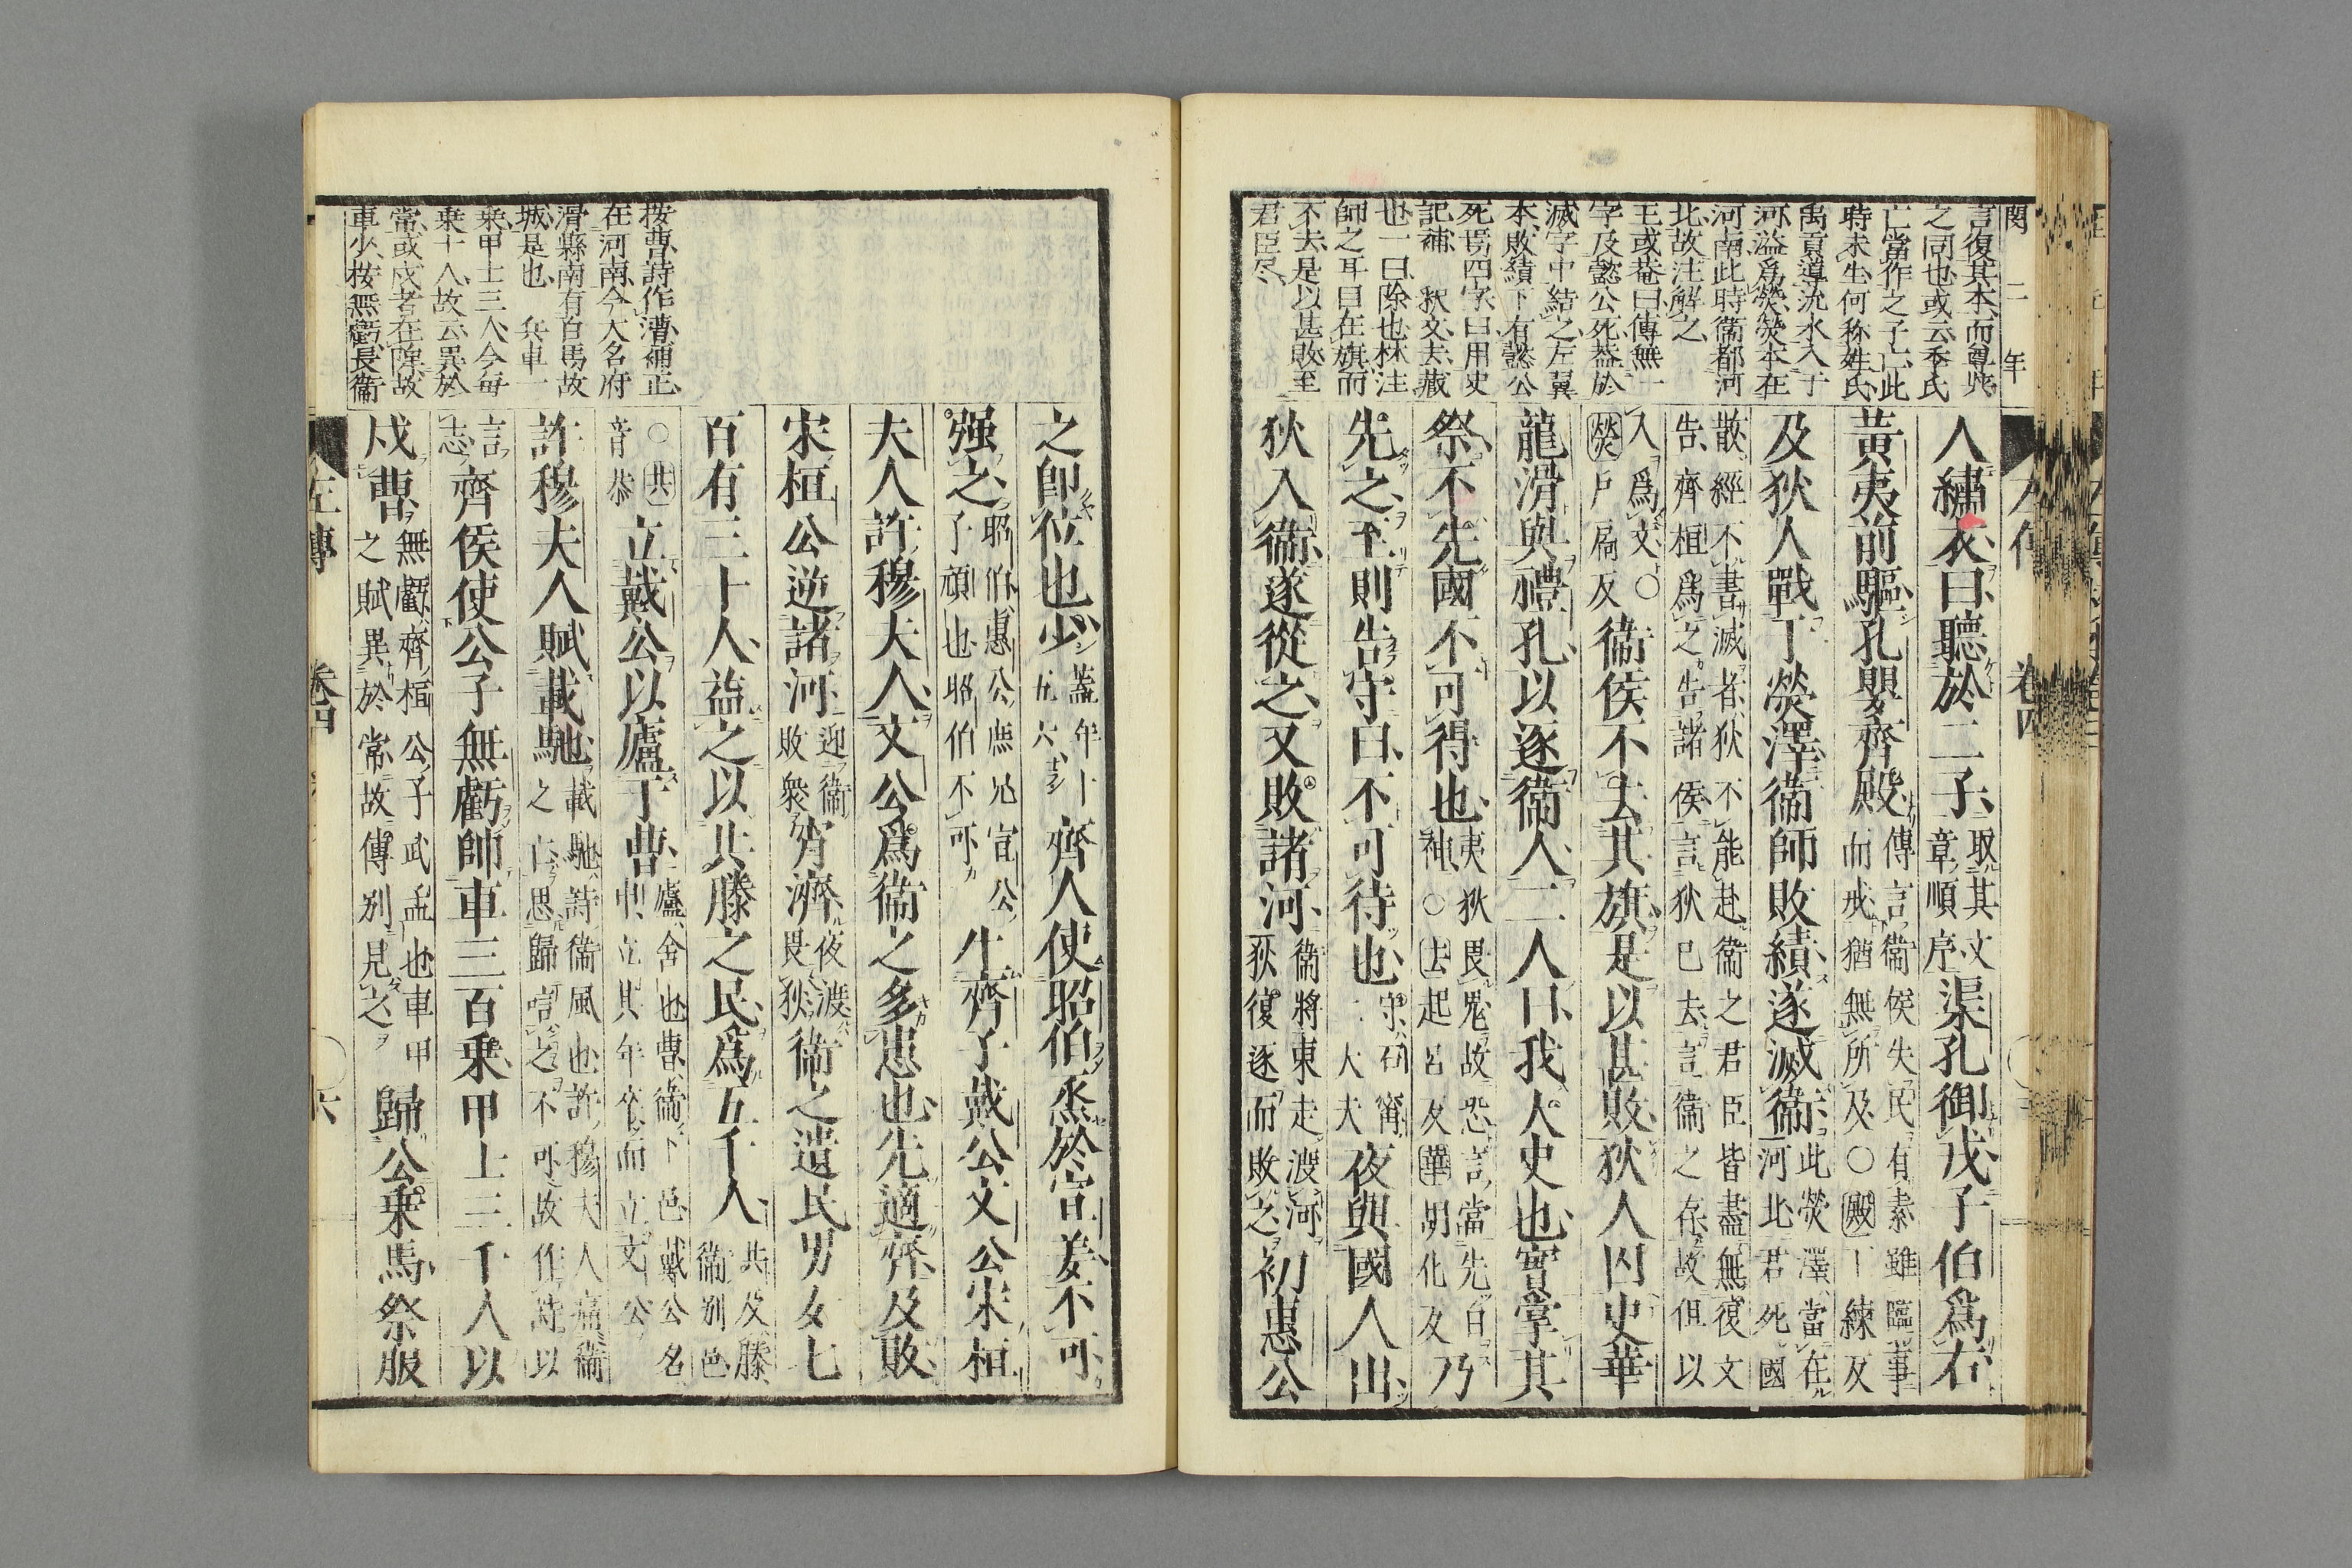 閔二年
言復其本而尊柴
之同也或云季氏
亡當作之子亡此
時未生何称姓氏
禹貢導沇水入于
河溢爲滎滎本在
河南此時衞都河
北故注解之
王或菴曰傳無一
字及懿公死蓋於
滅字中結之左翼
本敗績下有懿公
死焉四字曰用史
記補　釈文去藏
也一曰除也林注
師之耳曰在旗而
不去是以甚敗至
君臣尽
人繡衣曰聽於二子取其文章順序渠孔御戎子伯爲右
黃夷前驅孔嬰齊殿傳言衞侯失民有素雖臨事而戒猶無所及○殿丁練反
及狄人戰于熒澤衞師敗績遂滅衞此熒澤當在河北君死國
散經不書滅者狄不能赴衞之君臣皆盡無復文告齊桓爲之告諸侯言狄已去言衞之存故但以
入爲文○熒戶扃反衞侯不去其旗是以甚敗狄人囚史華
龍滑與禮孔以逐衞人二人曰我大史也實掌其
祭不先國不可得也夷狄畏鬼故恐言當先白神○去起呂反華胡化反乃
先之至則告守曰不可待也守石甯二大夫夜與國人出
狄入衞遂從之又敗諸河衞將東走渡河狄復逐而敗之初惠公
左傳　卷四
之卽位也少蓋年十五六齊人使昭伯烝於宣姜不可
强之昭伯惠公庶兄宣公子頑也昭伯不可生齊子戴公文公宋桓
夫人許穆夫人文公爲衞之多患也先適齊及敗
宋桓公逆諸河迎衞敗衆宵濟夜渡畏狄衞之遺民男女七
百有三十人益之以共滕之民爲五千人共及滕衞別邑
○共音恭立戴公以廬于曹廬舍也曹衞下邑戴公名申立其年卒而立文公
許穆夫人賦載馳載馳詩衞風也許穆夫人痛衞之亡思歸唁之不可故作詩以
言志齊侯使公子無虧帥車三百乘甲士三千人以
戍曹無虧齊桓公子武孟也車甲之賦異於常故傳別見之歸公乘馬祭服
按曹詩作漕補正
在河南今大名府
滑縣南有白馬故
城是也　兵車一
乘甲士三人今每
乘十人故云異於
常或戍者在陣故
車少按無虧長衞
左傳　卷四　六